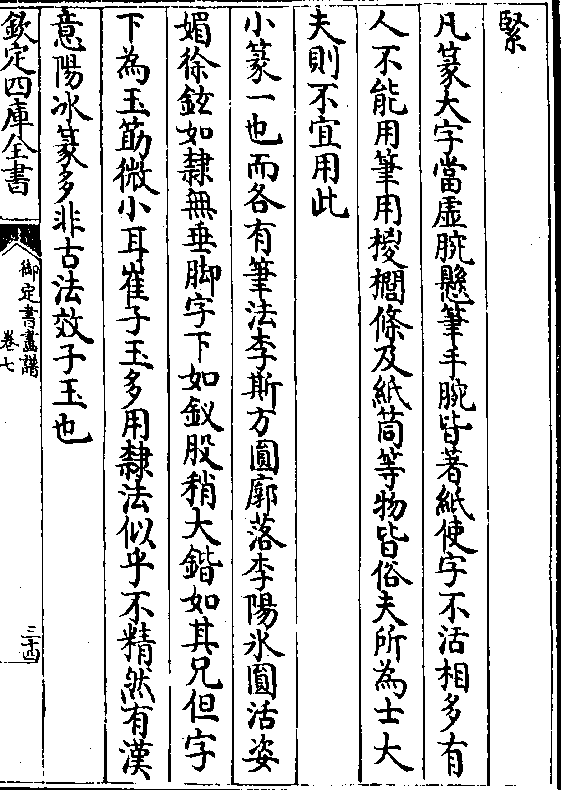 緊
凡篆大字當虛腕懸筆手腕皆著紙使字不活相多有
人不能用筆用椶櫚條及紙筒等物皆俗夫所為士大
夫則不宜用此
小篆一也而各有筆法李斯方圓廓落李陽氷圓活姿
媚徐鉉如隸無垂脚字下如釵股稍大鍇如其兄但字
下為玉筯微小耳崔子玉多用隸法似乎不精然有漢
意陽冰篆多非古法效子玉也
欽定四庫全書
御定書畫譜
卷七
三十四